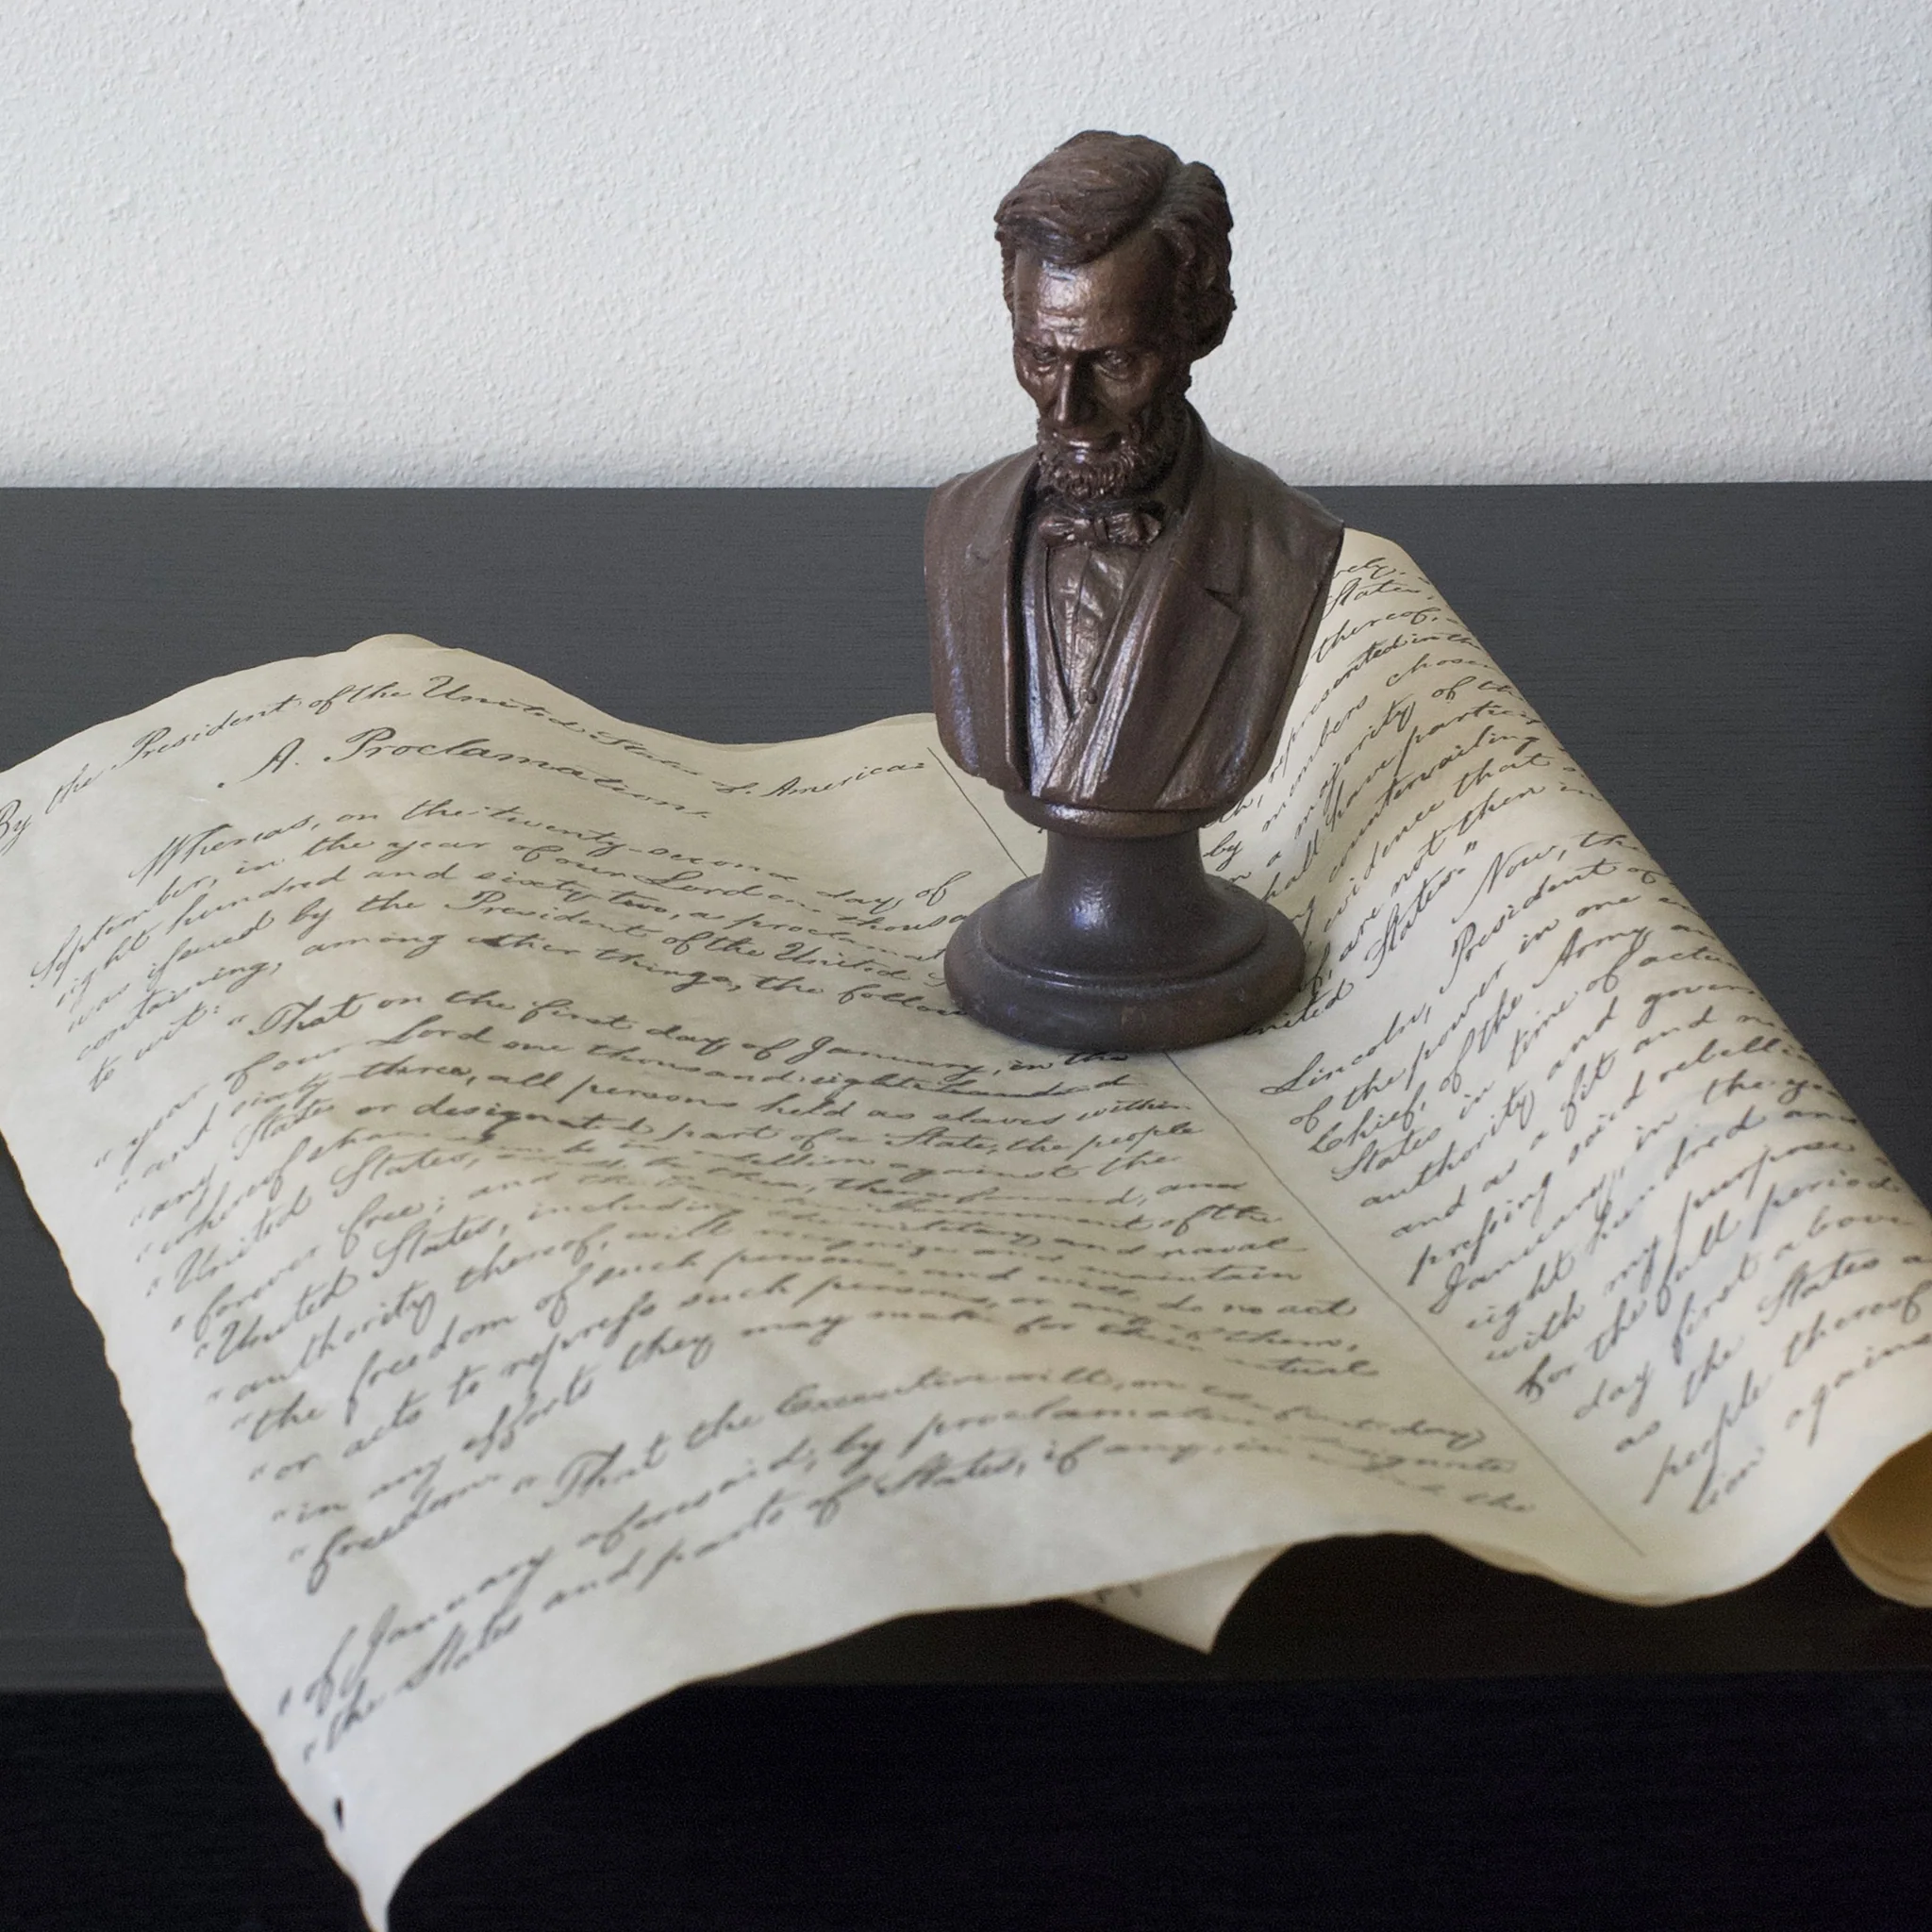 By the President of the United States of America:
A. Proclamation.
Whereas, on the twenty-second day of
September, in the year of our Lord one thousa
eight hundred and sixty-two, a proclamat
was issued by the President of the United S
containing, among other things, the follow
to wit:
"That on the first day of January, in the
"year of our Lord one thousand eight hundred
"and sixty-three, all persons held as slaves within
"any State or designated part of a State, the people
"whereof shall then be in rebellion against the
"United States, shall be then, thenceforward, and
"forever free; and the Executive Government of the
"United States, including the military and naval
"authority thereof, will recognize and maintain
"the freedom of such persons, and will do no act
"or acts to repress such persons, or any of them,
"in any efforts they may make for their actual
"freedom.
"That the Executive will, on the first day
"of January aforesaid, by proclamation, designate
"the States and parts of States, if any, in which the
States,
thereof,
represented in th
by members chosen
a majority of th
shall have partici
countervailing
evidence that
f, are not then in
United States."
Now, the
Lincoln, President of
of the power in one
Chief, of the Army an
States in time of actu
authority and govern
and as a fit and ne
pressing said rebelli
January, in the yea
eight hundred and
with my purpose
for the full period
day first above
as the States a
people thereof
tion agains